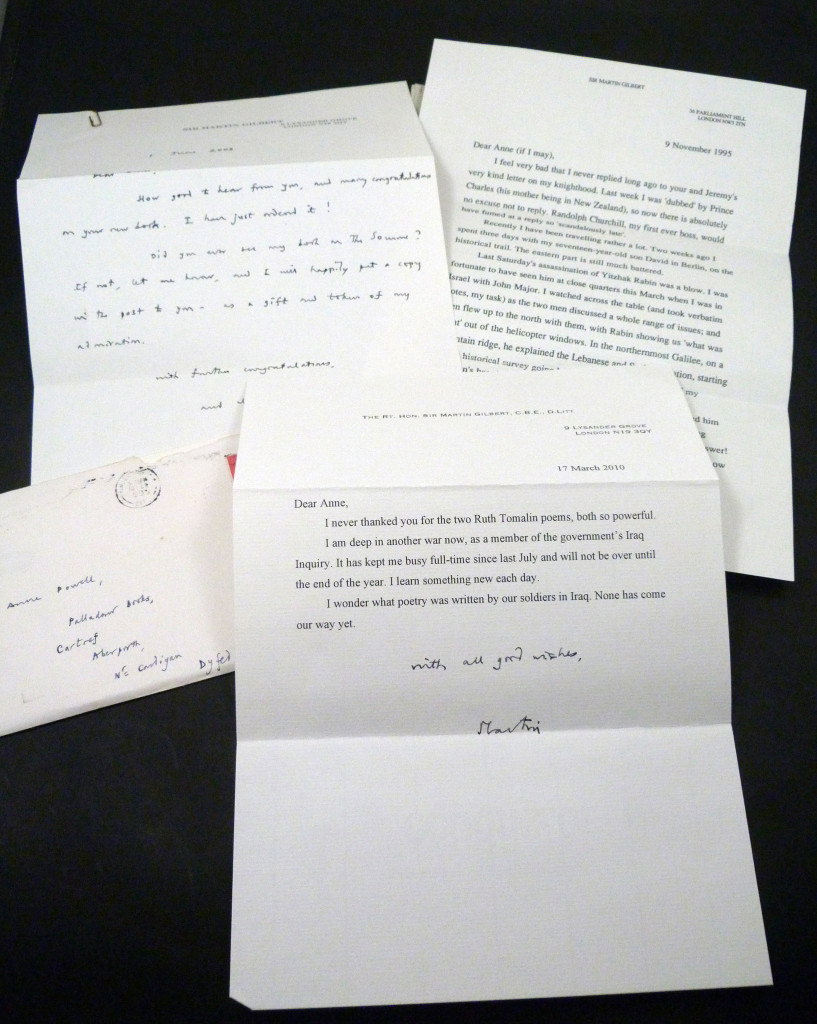 SIR MARTIN GILBERT
LYSANDER GROVE
June
How good to hear from you, and many congratulations
on your new book. I have just ordered it!
Did you ever see my book on The Somme?
If not, let me know, and I will happily put a copy
in the post to you - as a gift and token of my
admiration.
with further congratulations,
and
SIR MARTIN GILBERT
PARLIAMENT HILL
LONDON NW3
9 November 1995
Dear Anne (if I may),
I feel very bad that I never replied long ago to your and Jeremy's
very kind letter on my knighthood. Last week I was 'dubbed' by Prince
Charles (his mother being in New Zealand), so now there is absolutely
no excuse not to reply. Randolph Churchill, my first ever boss, would
have fumed at a reply so 'scandalously late'.
Recently I have been travelling rather a lot. Two weeks ago I
spent three days with my seventeen-year-old son David in Berlin, on the
historical trail. The eastern part is still much battered.
Last Saturday's assassination of Yitzhak Rabin was a blow. I was
fortunate to have seen him at close quarters this March when I was in
Israel with John Major. I watched across the table (and took verbatim
otes, my task) as the two men discussed a whole range of issues; and
n flew up to the north with them, with Rabin showing us 'what was
' out of the helicopter windows. In the northernmost Galilee, on a
ntain ridge, he explained the Lebanese and
tion, starting
historical survey going
my
d him
g
swer!
ow
THE RT. HON. SIR MARTIN GILBERT, C.B.E., D.LITT.
9 LYSANDER GROVE
LONDON N19 3QY
17 March 2010
Dear Anne,
I never thanked you for the two Ruth Tomalin poems, both so powerful.
I am deep in another war now, as a member of the government's Iraq
Inquiry. It has kept me busy full-time since last July and will not be over until
the end of the year. I learn something new each day.
I wonder what poetry was written by our soldiers in Iraq. None has come
our way yet.
with all good wishes,
Martin
Anne Powell,
Palladour Books,
Cartref
Aberporth,
Nr Cardigan
Dyfed